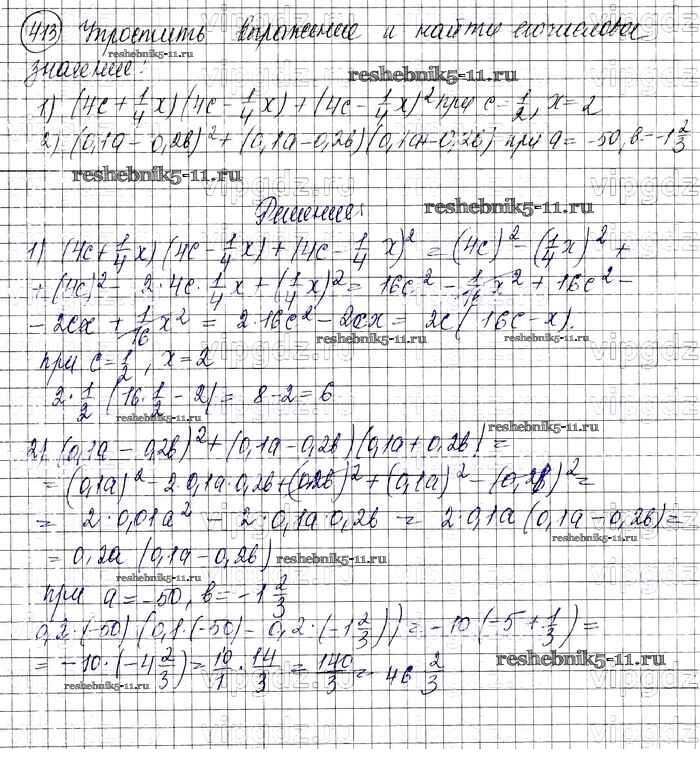 413 Упростить выражение и найти его числовое
reshebnik5-11.ru
значение:
reshebnik5-11.ru
1) (4c + 1/4 x)(4c - 1/4 x) + (4c - 1/4 x)² при c = 1/2, x = 2
2) (0,1a - 0,2b)² + (0,1a - 0,2b)(0,1a + 0,2b) при a = -50, b = -1 2/3
reshebnik5-11.ru
Решение:
reshebnik5-11.ru
1) (4c + 1/4 x)(4c - 1/4 x) + (4c - 1/4 x)² = (4c)² - (1/4 x)² +
+ (4c)² - 2·4c·1/4 x + (1/4 x)² = 16c² - 1/16 x² + 16c² -
- 2cx + 1/16 x² = 2·16c² - 2cx = 2c(16c - x).
reshebnik5-11.ru
reshebnik5-11.ru
при c = 1/2, x = 2
2·1/2 (16·1/2 - 2) = 8 - 2 = 6
reshebnik5-11.ru
reshebnik5-11.ru
2) (0,1a - 0,2b)² + (0,1a - 0,2b)(0,1a + 0,2b) =
= (0,1a)² - 2·0,1a·0,2b + (0,2b)² + (0,1a)² - (0,2b)² =
= 2·0,01a² - 2·0,1a·0,2b = 2·0,1a(0,1a - 0,2b) =
reshebnik5-11.ru
= 0,2a (0,1a - 0,2b)
reshebnik5-11.ru
reshebnik5-11.ru
при a = -50, b = -1 2/3
0,2·(-50)(0,1·(-50) - 0,2·(-1 2/3)) = -10(-5 + 1/3) =
= -10·(-4 2/3) = 10/1 · 14/3 = 140/3 = 46 2/3
reshebnik5-11.ru
reshebnik5-11.ru
reshebnik5-11.ru